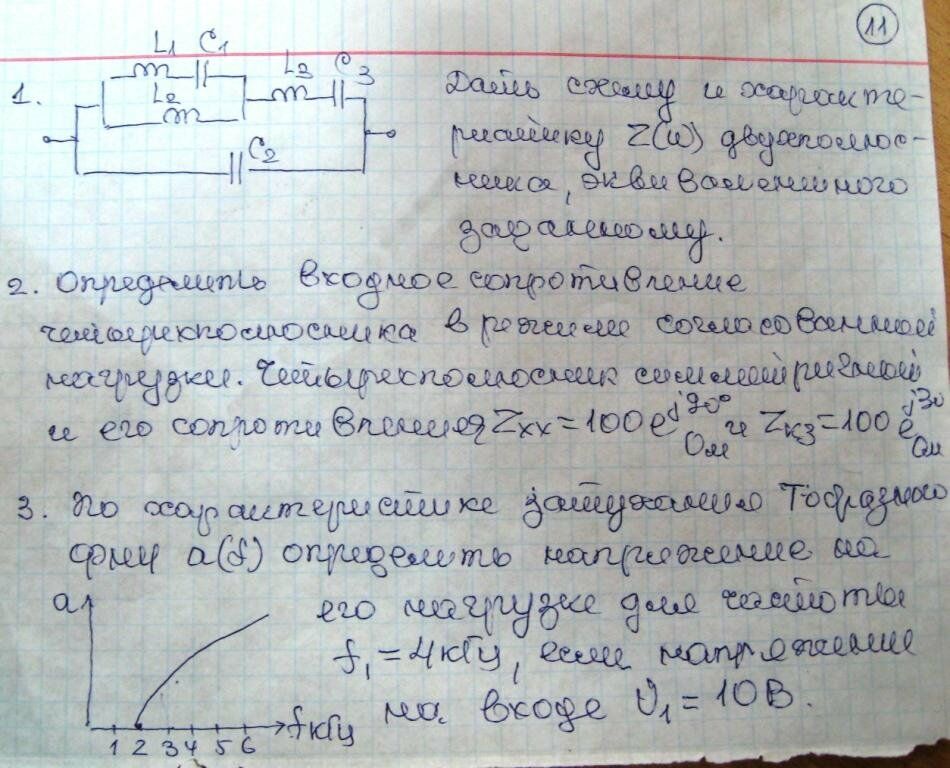 11
L1 C1
L2
L3 C3
C2
1. Дать схему и характе-
ристику Z(ω) двухполюс-
ника, эквивалентного
заданному.
2. Определить входное сопротивление
четырехполюсника в режиме согласованной
нагрузки. Четырехполюсник симметричный
и его сопротивления Zxx = 100 e^j90° Ом и Zкз = 100 e^j30 Ом
3. По характеристике затухания Т-образного
ФНЧ a(f) определить напряжение на
его нагрузке для частоты
f1 = 4 кГц, если напряжение
на входе U1 = 10 В.
a
1 2 3 4 5 6 f кГц